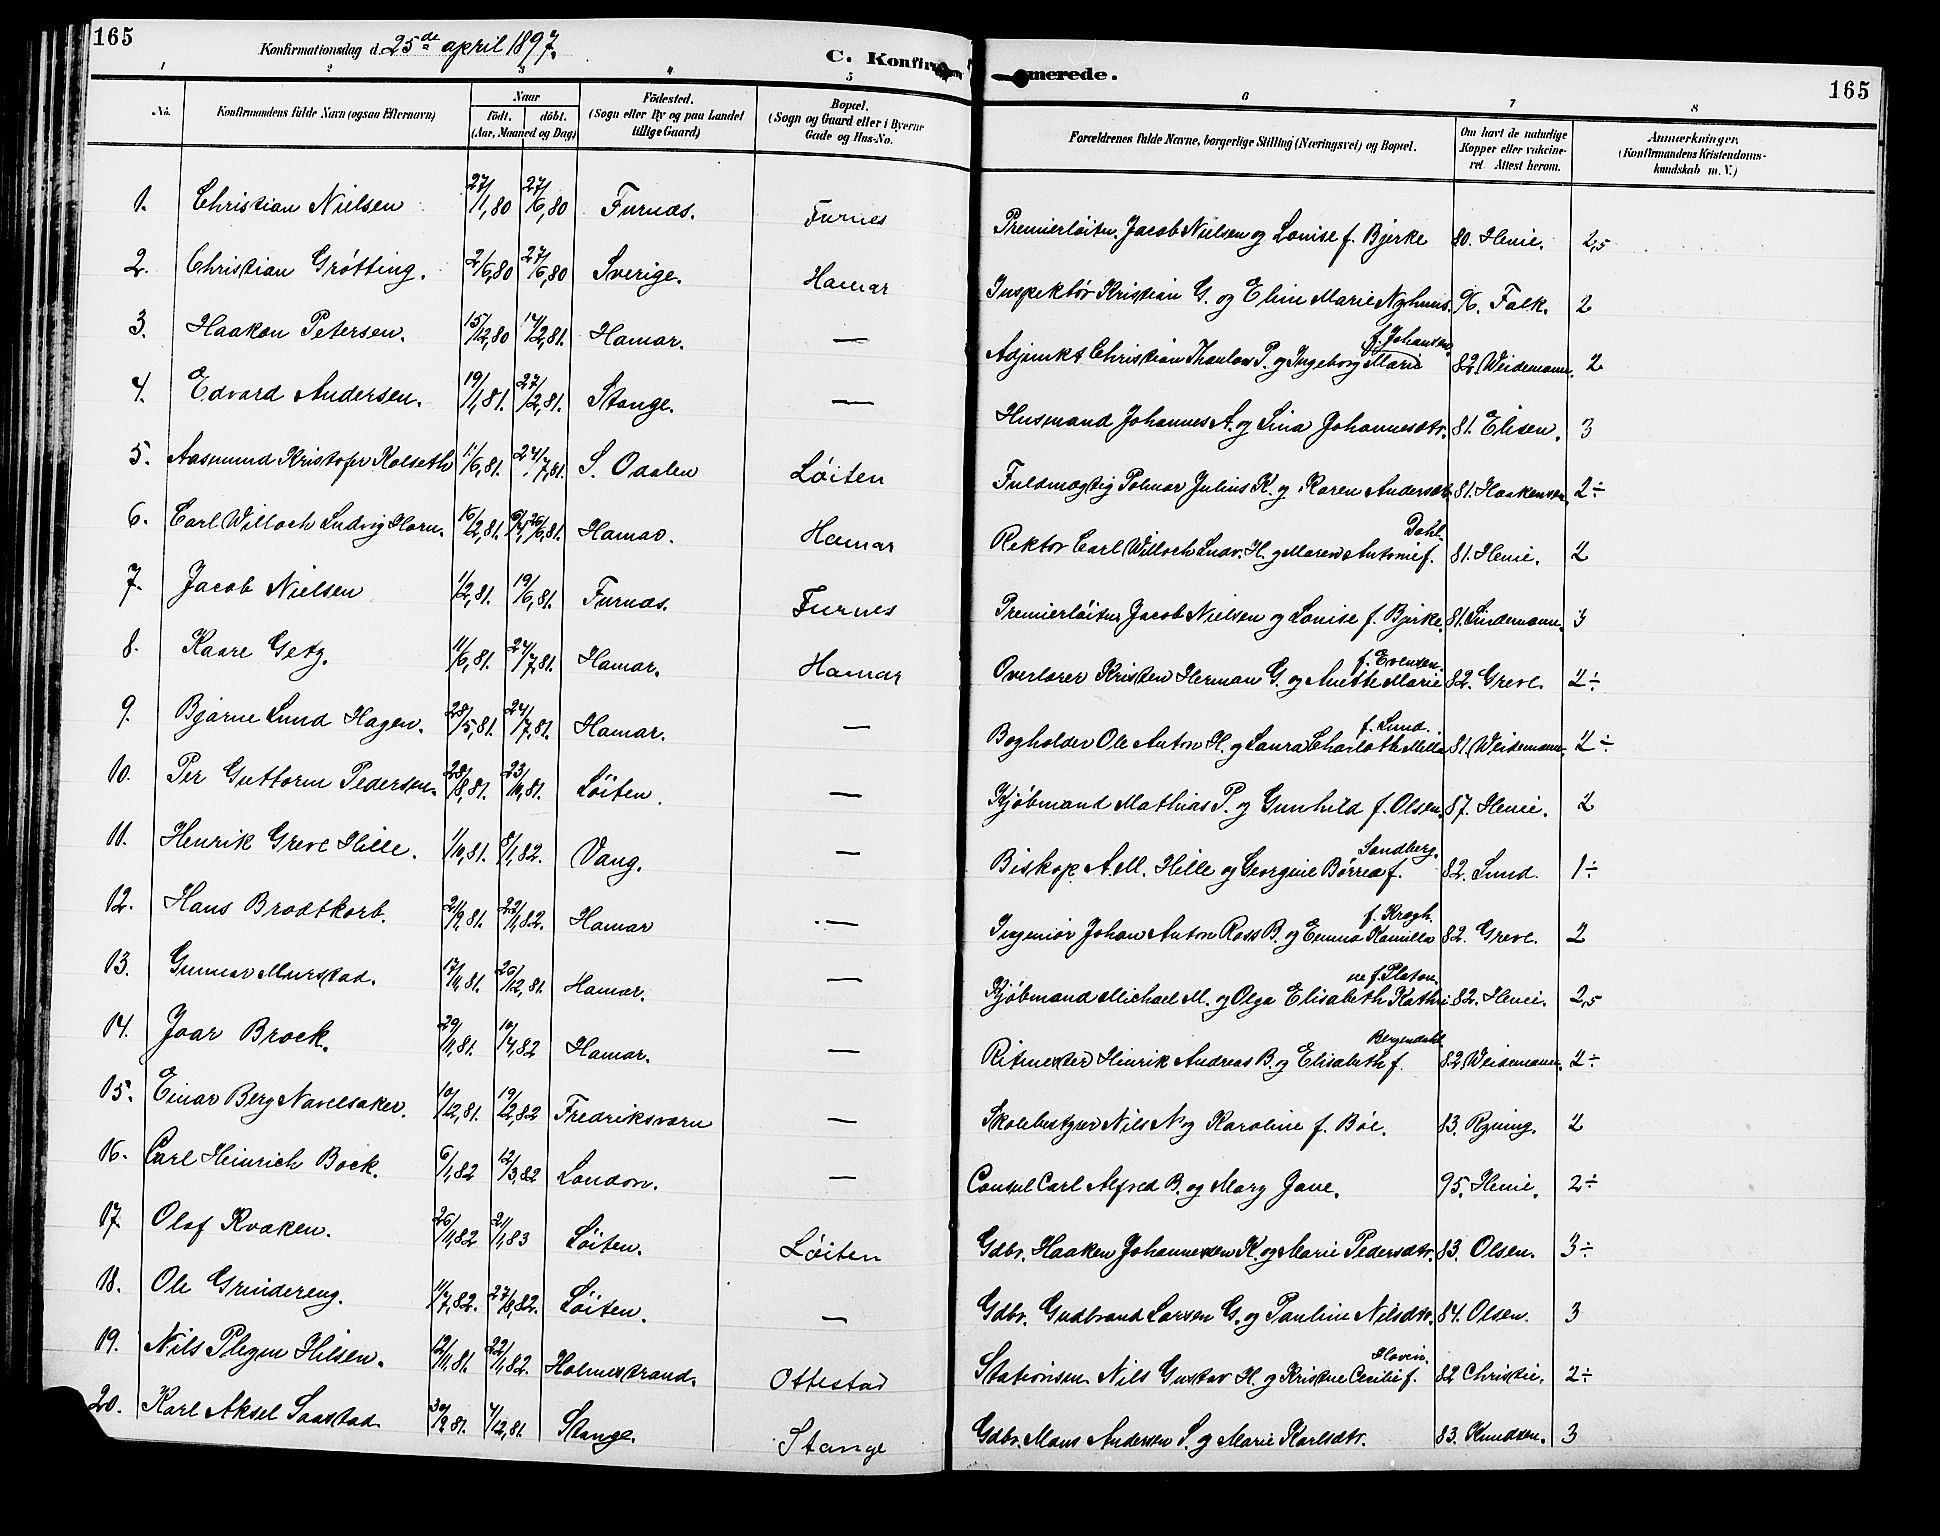 165
Konfirmationsdag d. 25de april 1897.
C. Konfir merede.
165
1 2 3 4 5 6 7 8
No. Konfirmandens fulde Navn (ogsaa Efternavn) Naar Födt. döbt. (Aar, Maaned og Dag) Födested. (Sogn eller By og paa Landet tillige Gaard) Bopæl. (Sogn og Gaard eller i Byerne Gade og Hus-No. Forældrenes fulde Navne, borgerlige Stilling (Næringsvei) og Bopæl. Om havt de naturlige Kopper eller vakcineret. Attest herom. Anmærkninger, (Konfirmandens Kristendomskundskab m. V.)
1. Christian Nielsen 27/1,80 27/6,80 Furnæs. Furnes Premierløitn. Jacob Nielsen og Louise f. Bjerke 80. Henie. 2,5
2. Christian Grötting. 2/6,80 27/6,80 Sverige. Hamar Inspektör Kristian G. og Eline Marie Nyhuus. 96. Falk. 2
3. Haakon Petersen. 15/12,80 17/2,81. Hamar. — Adjunkt Christian Thaulow P. og Ingeborg Marie f. Johansen. 82. Weidemann. 2
4. Edvard Andersen. 19/1,81. 27/2,81. Stange. — Husmand Johannes A. og Sina Johannesdtr. 81. Elisen. 3
5. Aasmund Kristofer Kolseth 11/6,81. 24/7,81. S. Odalen Løiten Fuldmægtig Julius K. og Karen Andersdt. 81. Haakensen. 2÷
6. Carl Willoch Ludvig Horn. 16/2,81. 26/6,81. Hamar. Hamar Rektor Carl Willoch Ludv. H. og Maren Antonie f. Dahl. 81. Henie. 2
7. Jacob Nielsen 1/2,81. 19/6,81. Furnæs. Furnes Premierløitn. Jacob Nielsen og Louise f. Bjerke. 81. Lindemann. 3
8. Kaare Getz. 11/6,81. 24/7,81. Hamar. Hamar Overlærer Kristen Herman G. og Anette Marie f. Evensen. 82. Greve. 2÷
9. Bjarne Lund Hagen. 28/5,81. 24/7,81. Hamar. — Bogholder Ole Anton H. og Laura Charlotte Milla f. Lund. 81. Weidemann. 2÷
10. Per Guttorm Pedersen. 28/8,81. 23/10,81. Löiten. — Kjöbmand Mathias P. og Gunhild f. Olsen. 87. Henie. 2
11. Henrik Greve Hille. 1/10,81. 8/1,82. Vang. — Biskop A. M. Hille og Georgine Børrea f. Sandberg. 82. Lund. 1÷
12. Hans Brodtkorb. 21/9,81. 22/1,82. Hamar — Ingeniør Johan Anton Ross B. og Emma Kamilla f. Krogh. 82. Greve. 2
13. Gunnar Murstad. 17/11,81. 26/12,81. Hamar. — Kjöbmand Michael M. og Olga Elisabeth Kathrine f. Platou. 82. Henie. 2,5
14. Joar Brock. 29/11,81. 10/4,82 Hamar. — Ritmester Hinrik Andreas B. og Elisabeth f. Bergendahl. 82. Weidemann. 2÷
15. Einar Berg Navelsaker. 10/12,81. 19/2,82 Fredriksværn — Skolebestyrer Nils N og Karoline f. Böe. 83. Ryning. 2
16. Carl Heinrich Bock. 6/1,82 12/3,82 London. — Consul Carl Alfred B. og Mary Jane. 95. Henie. 2÷
17. Olaf Kvaken. 26/11,82 21/1,83 Löiten. Løiten Gdbr. Haaken Johannesen K. og Marie Pedersdtr. 83. Olsen. 3÷
18. Ole Grindereng. 11/7,82. 27/8,82. Löiten. — Gdbr. Gudbrand Larsen G. og Pauline Nilsdtr. 84. Olsen. 3
19. Nils Hilsen. 12/11,81. 22/1,82. Holmestrand. Ottestad Stationsm. Nils Gustav H. og Kristine Cecilie f. Hovin. 82 Christie. 2÷
20. Karl Aksel Saastad. 30/9,81. 4/12,81. Stange. Stange Gdbr. Mons Andersen S. og Marie Karlsdtr. 83. Knudsen. 3